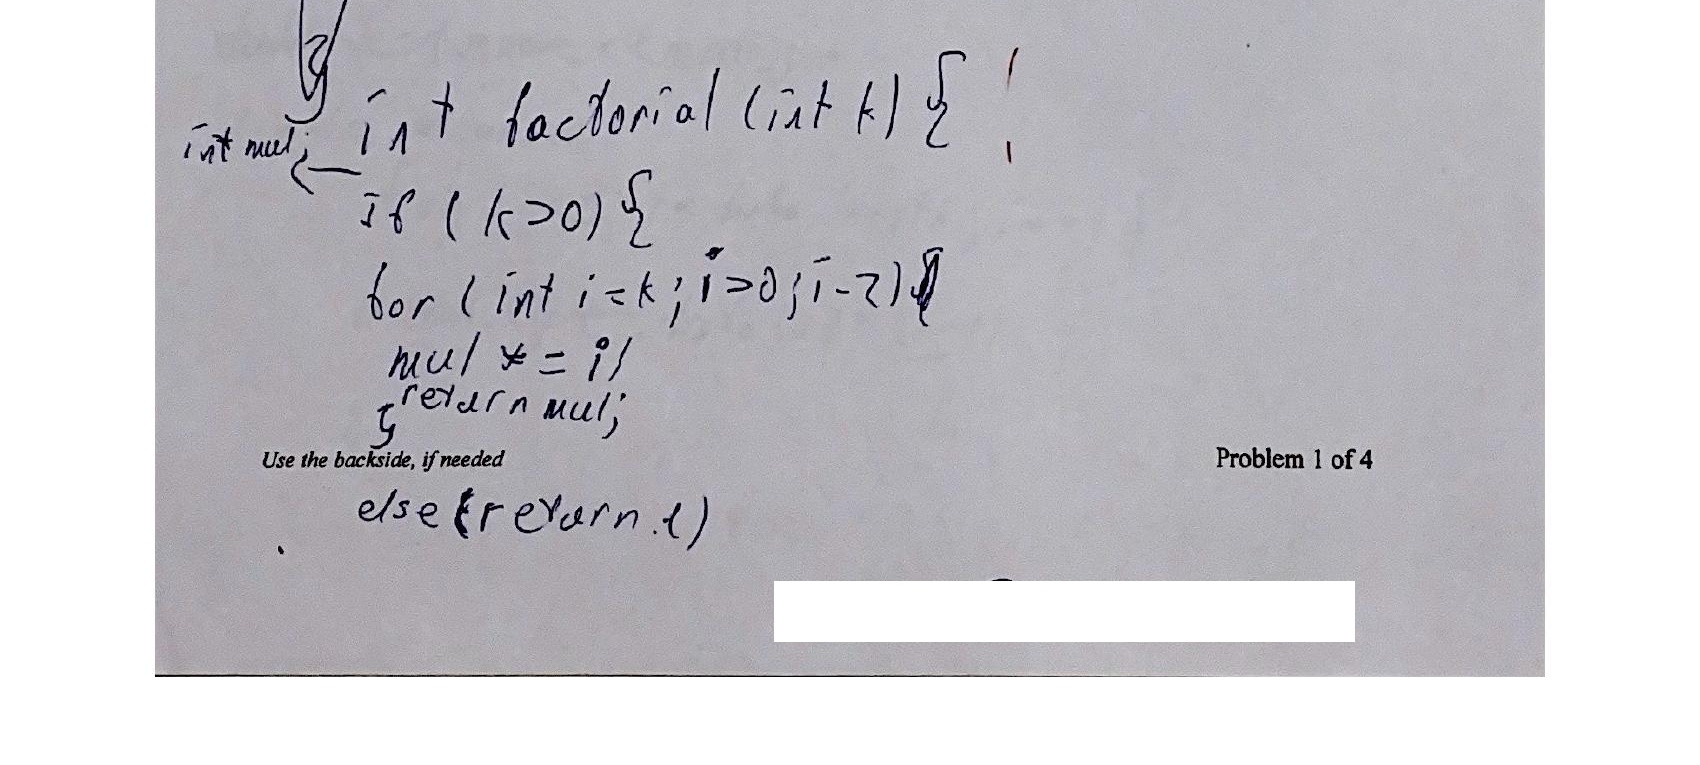 int factorial (int k) {
int mul;
if (k>0) {
for (int i=k; i>0; i-2) {
mul *= i;
return mul;
}
Use the backside, if needed
Problem 1 of 4
else (return 1)